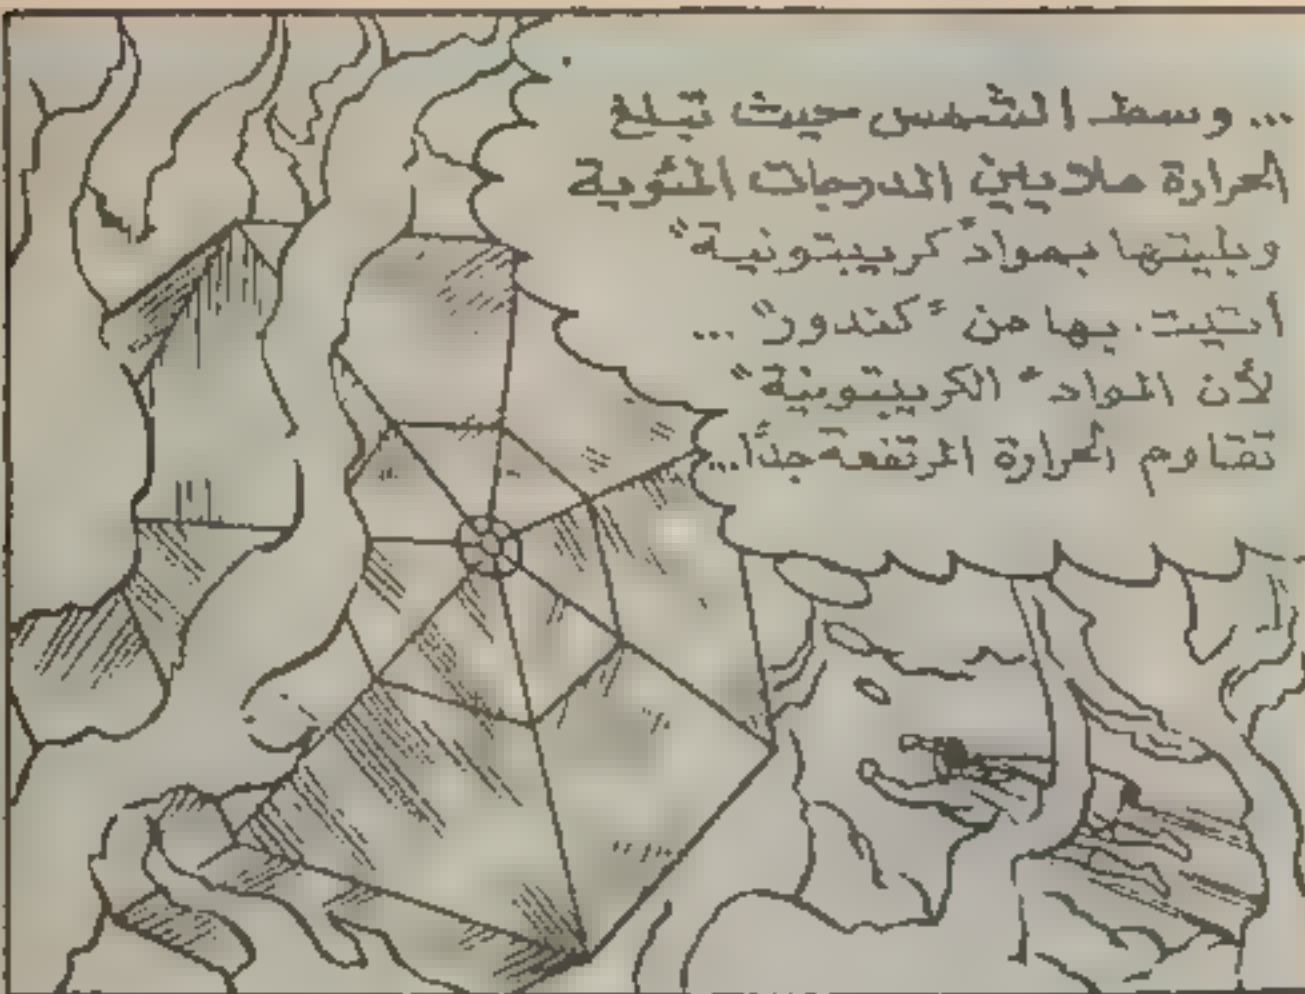 ... وسط الشمس حيث تبلغ
الحرارة ملايين الدرجات المئوية
وبنيتها بمواد "كريبتونية"
أتيت بها من "كندور" ...
لأن المواد "الكريبتونية"
تقاوم الحرارة المرتفعة جدًا...